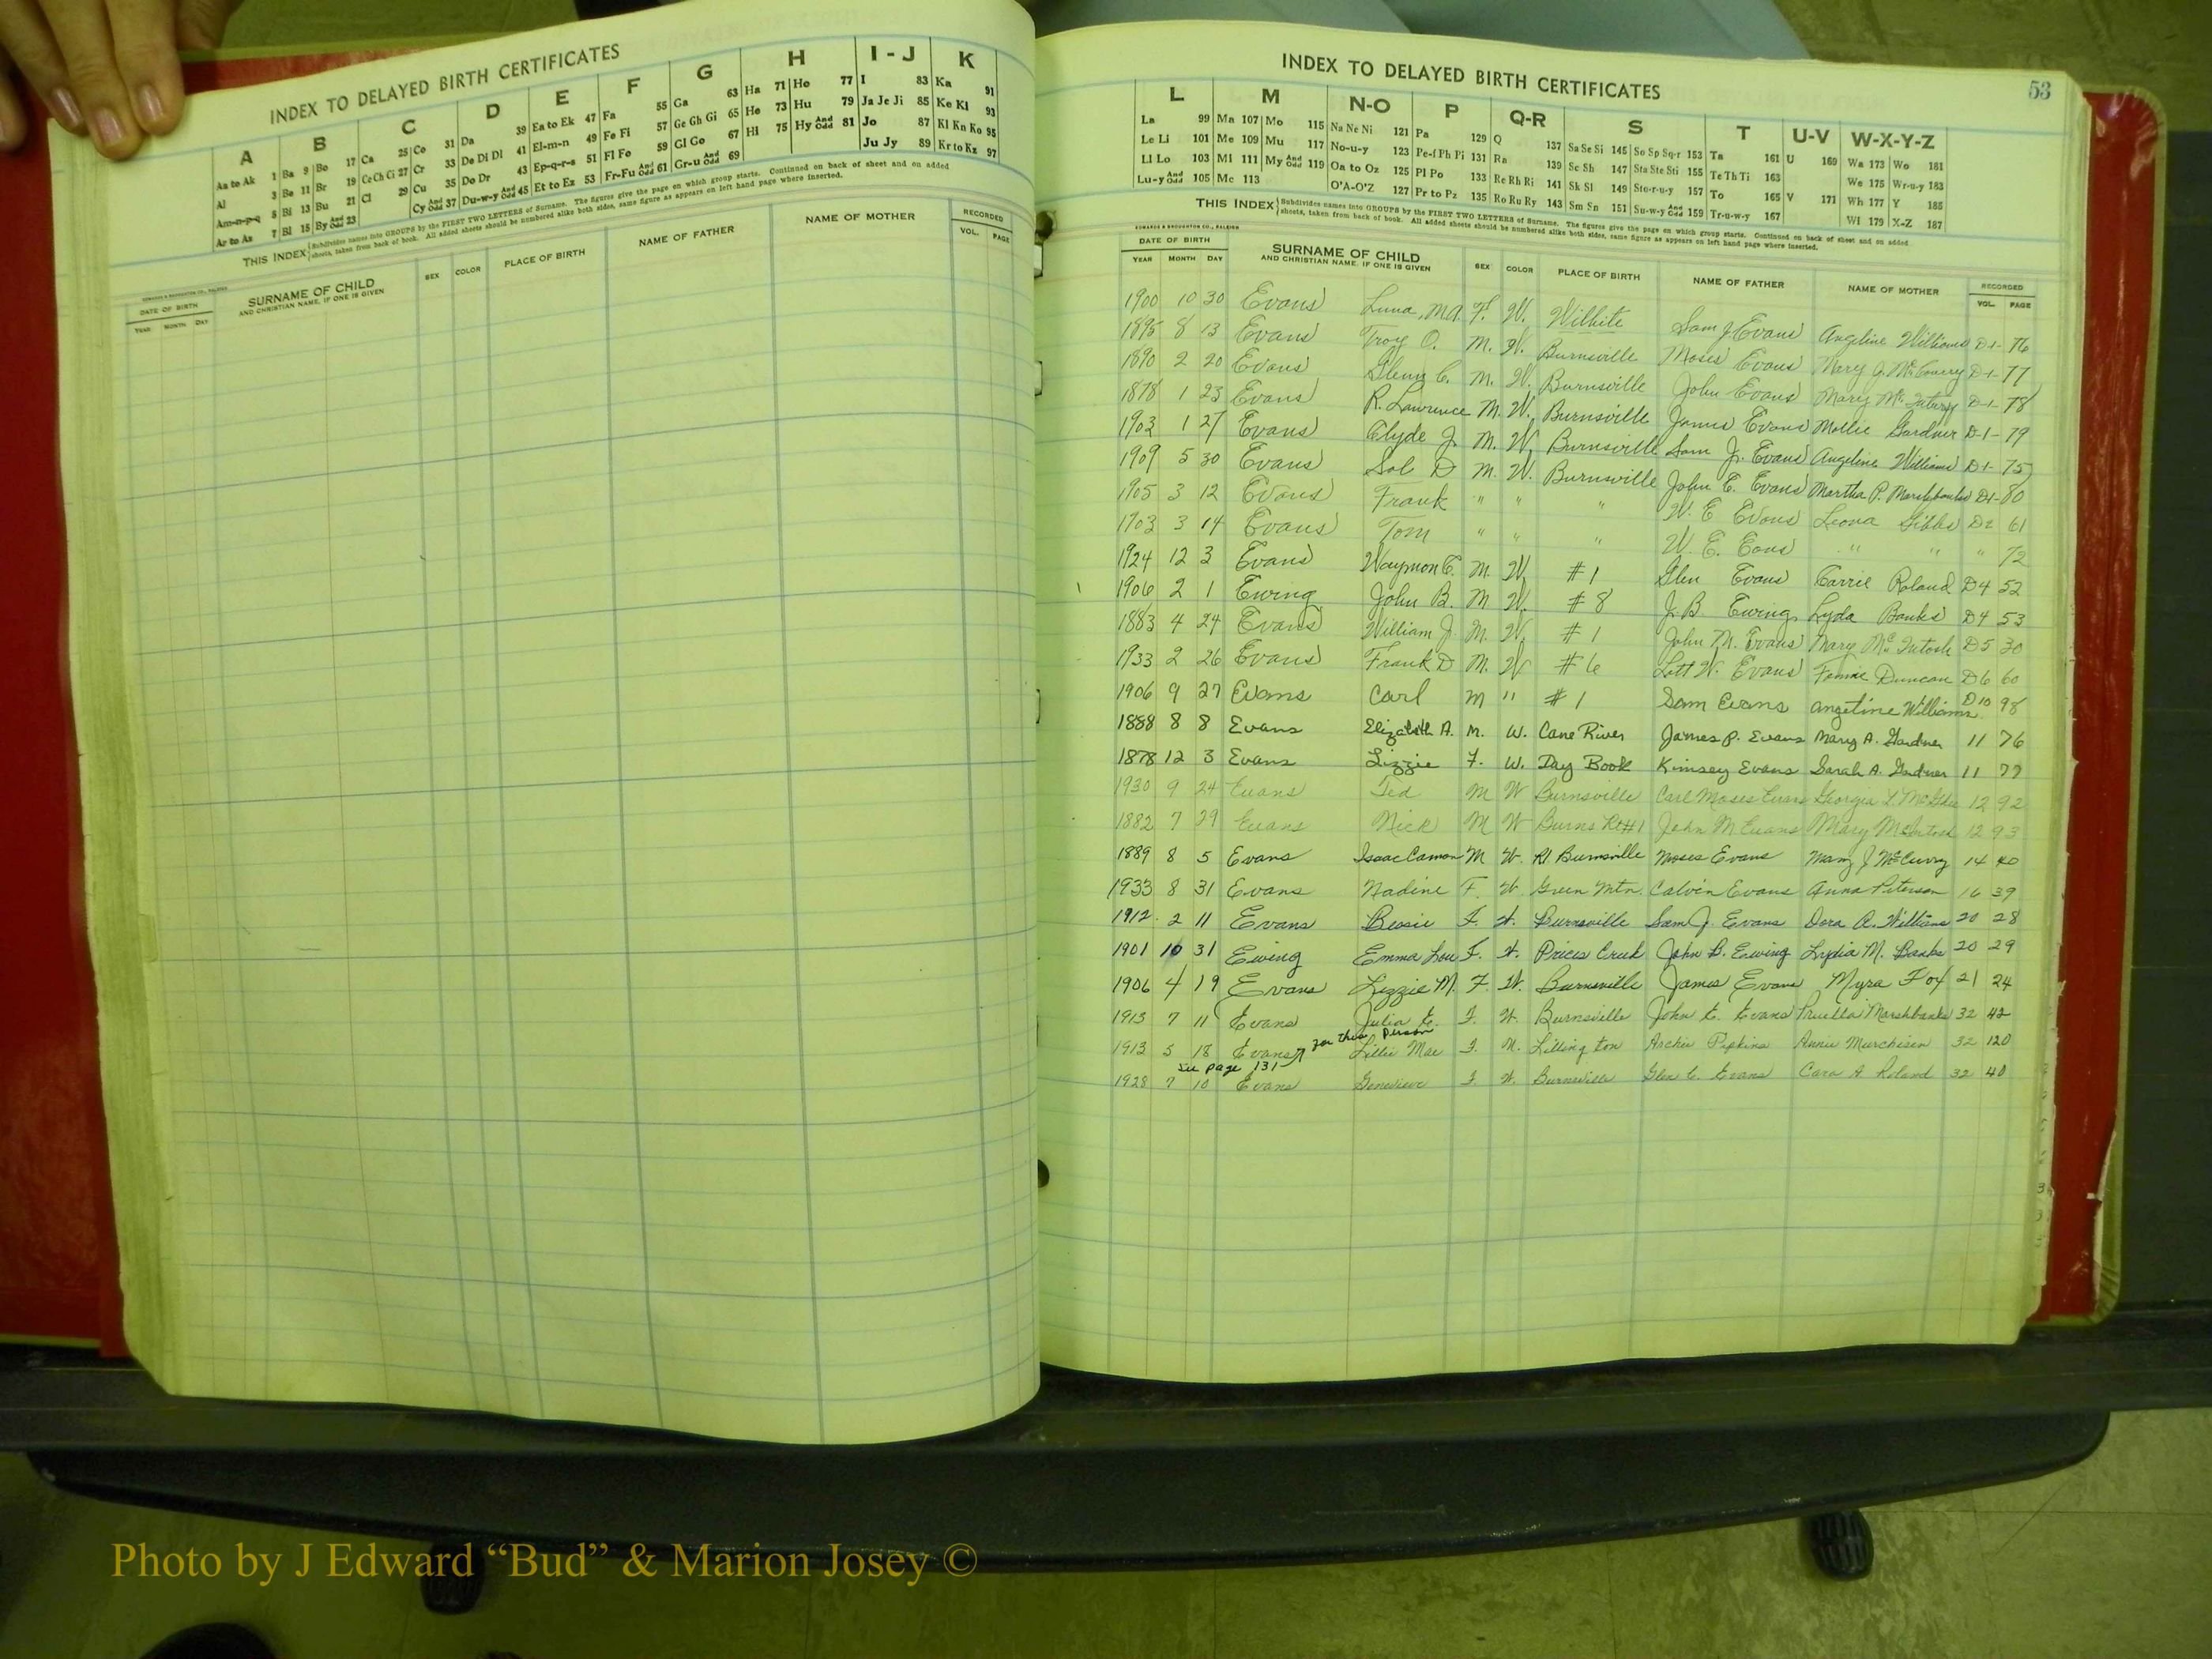 INDEX TO DELAYED BIRTH CERTIFICATES
A B C D E F G H I - J K
Aa to Ak 1 Ba 9 Bo 17 Ca 25 Co 31 Da 39 Ea to Ek 47 Fa 55 Ga 63 Ha 71 Ho 77 I 83 Ka 91
Al 3 Be 11 Br 19 Ce Ch Ci 27 Cr 33 De Di Dl 41 El-m-n 49 Fe Fi 57 Ge Gh Gi 65 He 73 Hu 79 Ja Je Ji 85 Ke Kl 93
Am-n-p-q 5 Bi 13 Bu 21 Cl 29 Cu 35 Do Dr 43 Ep-q-r-s 51 Fl Fo 59 Gl Go 67 Hi 75 Hy And Odd 81 Jo 87 Kl Kn Ko 95
Ar to Az 7 Bl 15 By And Odd 23 Cy And Odd 37 Du-w-y And Odd 45 Et to Ez 53 Fr-Fu And Odd 61 Gr-u And Odd 69 Ju Jy 89 Kr to Kz 97
THIS INDEX Subdivides names into GROUPS by the FIRST TWO LETTERS of Surname. The figures give the page on which group starts. Continued on back of sheet and on added
sheets, taken from back of book. All added sheets should be numbered alike both sides, same figure as appears on left hand page where inserted.
EDWARDS & BROUGHTON CO., RALEIGH
DATE OF BIRTH
YEAR MONTH DAY
SURNAME OF CHILD
AND CHRISTIAN NAME, IF ONE IS GIVEN
SEX COLOR PLACE OF BIRTH NAME OF FATHER NAME OF MOTHER
RECORDED
VOL. PAGE
INDEX TO DELAYED BIRTH CERTIFICATES 53
L M N-O P Q-R S T U-V W-X-Y-Z
La 99 Ma 107 Mo 115 Na Ne Ni 121 Pa 129 Q 137 Sa Se Si 145 So Sp Sq-r 153 Ta 161 U 169 Wa 173 Wo 181
Le Li 101 Me 109 Mu 117 No-u-y 123 Pe-f Ph Pi 131 Ra 139 Sc Sh 147 Sta Ste Sti 155 Te Th Ti 163 We 175 Wr-u-y 183
Ll Lo 103 Mi 111 My And Odd 119 Oa to Oz 125 Pl Po 133 Re Rh Ri 141 Sk Sl 149 Sto-r-u-y 157 To 165 V 171 Wh 177 Y 185
Lu-y And Odd 105 Mc 113 O'A-O'Z 127 Pr to Pz 135 Ro Ru Ry 143 Sm Sn 151 Su-w-y And Odd 159 Tr-u-w-y 167 Wi 179 X-Z 187
THIS INDEX Subdivides names into GROUPS by the FIRST TWO LETTERS of Surname. The figures give the page on which group starts. Continued on back of sheet and on added
sheets, taken from back of book. All added sheets should be numbered alike both sides, same figure as appears on left hand page where inserted.
EDWARDS & BROUGHTON CO., RALEIGH
DATE OF BIRTH
YEAR MONTH DAY
SURNAME OF CHILD
AND CHRISTIAN NAME, IF ONE IS GIVEN
SEX COLOR PLACE OF BIRTH NAME OF FATHER NAME OF MOTHER
RECORDED
VOL. PAGE
1900 10 30 Evans Luna, Ma. F. W. Wilhite Sam J Evans Angeline Williams D-1- 76
1895 8 13 Evans Troy O. M. W. Burnsville Moses Evans Mary J. D-1- 77
1890 2 20 Evans Glenn C. M. W. Burnsville John Evans Mary D-1- 78
1878 1 23 Evans R. Lawrence M. W. Burnsville James Evans Mollie Gardner D-1- 79
1903 1 27 Evans Clyde J. M. W. Burnsville Sam J. Evans Angeline Williams D-1- 75
1909 5 30 Evans Sol D M. W. Burnsville John E. Evans Martha P. Marshbanks D-1- 80
1905 3 12 Evans Frank " " " W. E Evans Leona Gibbs D2 61
1903 3 14 Evans Tom " " " W. E. Evans " " " 72
1924 12 3 Evans Waymon C. M. W. #1 Glen Evans Carrie Roland D4 52
1906 2 1 Ewing John B. M W. #8 J. B Ewing Lyda Banks D4 53
1883 4 24 Evans William J. M. W. #1 John M. Evans Mary McIntosh D5 30
1933 2 26 Evans Frank D M. W #6 Lott W. Evans Fannie Duncan D6 60
1906 9 27 Evans Carl M " #1 Sam Evans Angeline Williams D10 98
1888 8 8 Evans Elizabeth A. M. W. Cane River James P. Evans Mary A. Gardner 11 76
1878 12 3 Evans Lizzie F. W. Day Book Kimsey Evans Sarah A. Gardner 11 77
1930 9 24 Evans Ted M W Burnsville Carl Moses Evans Georgia L 12 92
1882 7 29 Evans Nick M W Burns Rt#1 John M Evans Mary McIntosh 12 93
1889 8 5 Evans Isaac Camon M W. R1 Burnsville Moses Evans Mary J McCurry 14 40
1933 8 31 Evans Nadine F. W. Green Mtn. Calvin Evans Anna Peterson 16 39
1912. 2 11 Evans Bessie F. W. Burnsville Sam J. Evans Dora A. Williams 20 28
1901 10 31 Ewing Emma Lou F. W. Prices Creek John B. Ewing Lydia M. Banks 20 29
1906 4 19 Evans Lizzie M. F. W. Burnsville James Evans Myra Fox 21 24
1913 7 11 Evans Julia E. F. W. Burnsville John E. Evans Marshbanks 32 42
for this person
1913 5 18 Evans Lillie Mae F. N. Lillington Archie Pipkins Annie Murchison 32 120
See page 131
1928 7 10 Evans Genevieve F. W. Burnsville Glen C. Evans Cara A Roland 32 40
Photo by J Edward “Bud” & Marion Josey ©